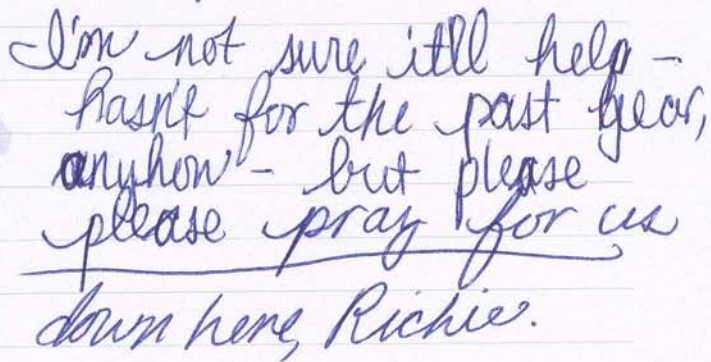 I'm not sure it'll help -
hasn't for the past year,
anyhow - but please
please pray for us
down here, Richie.